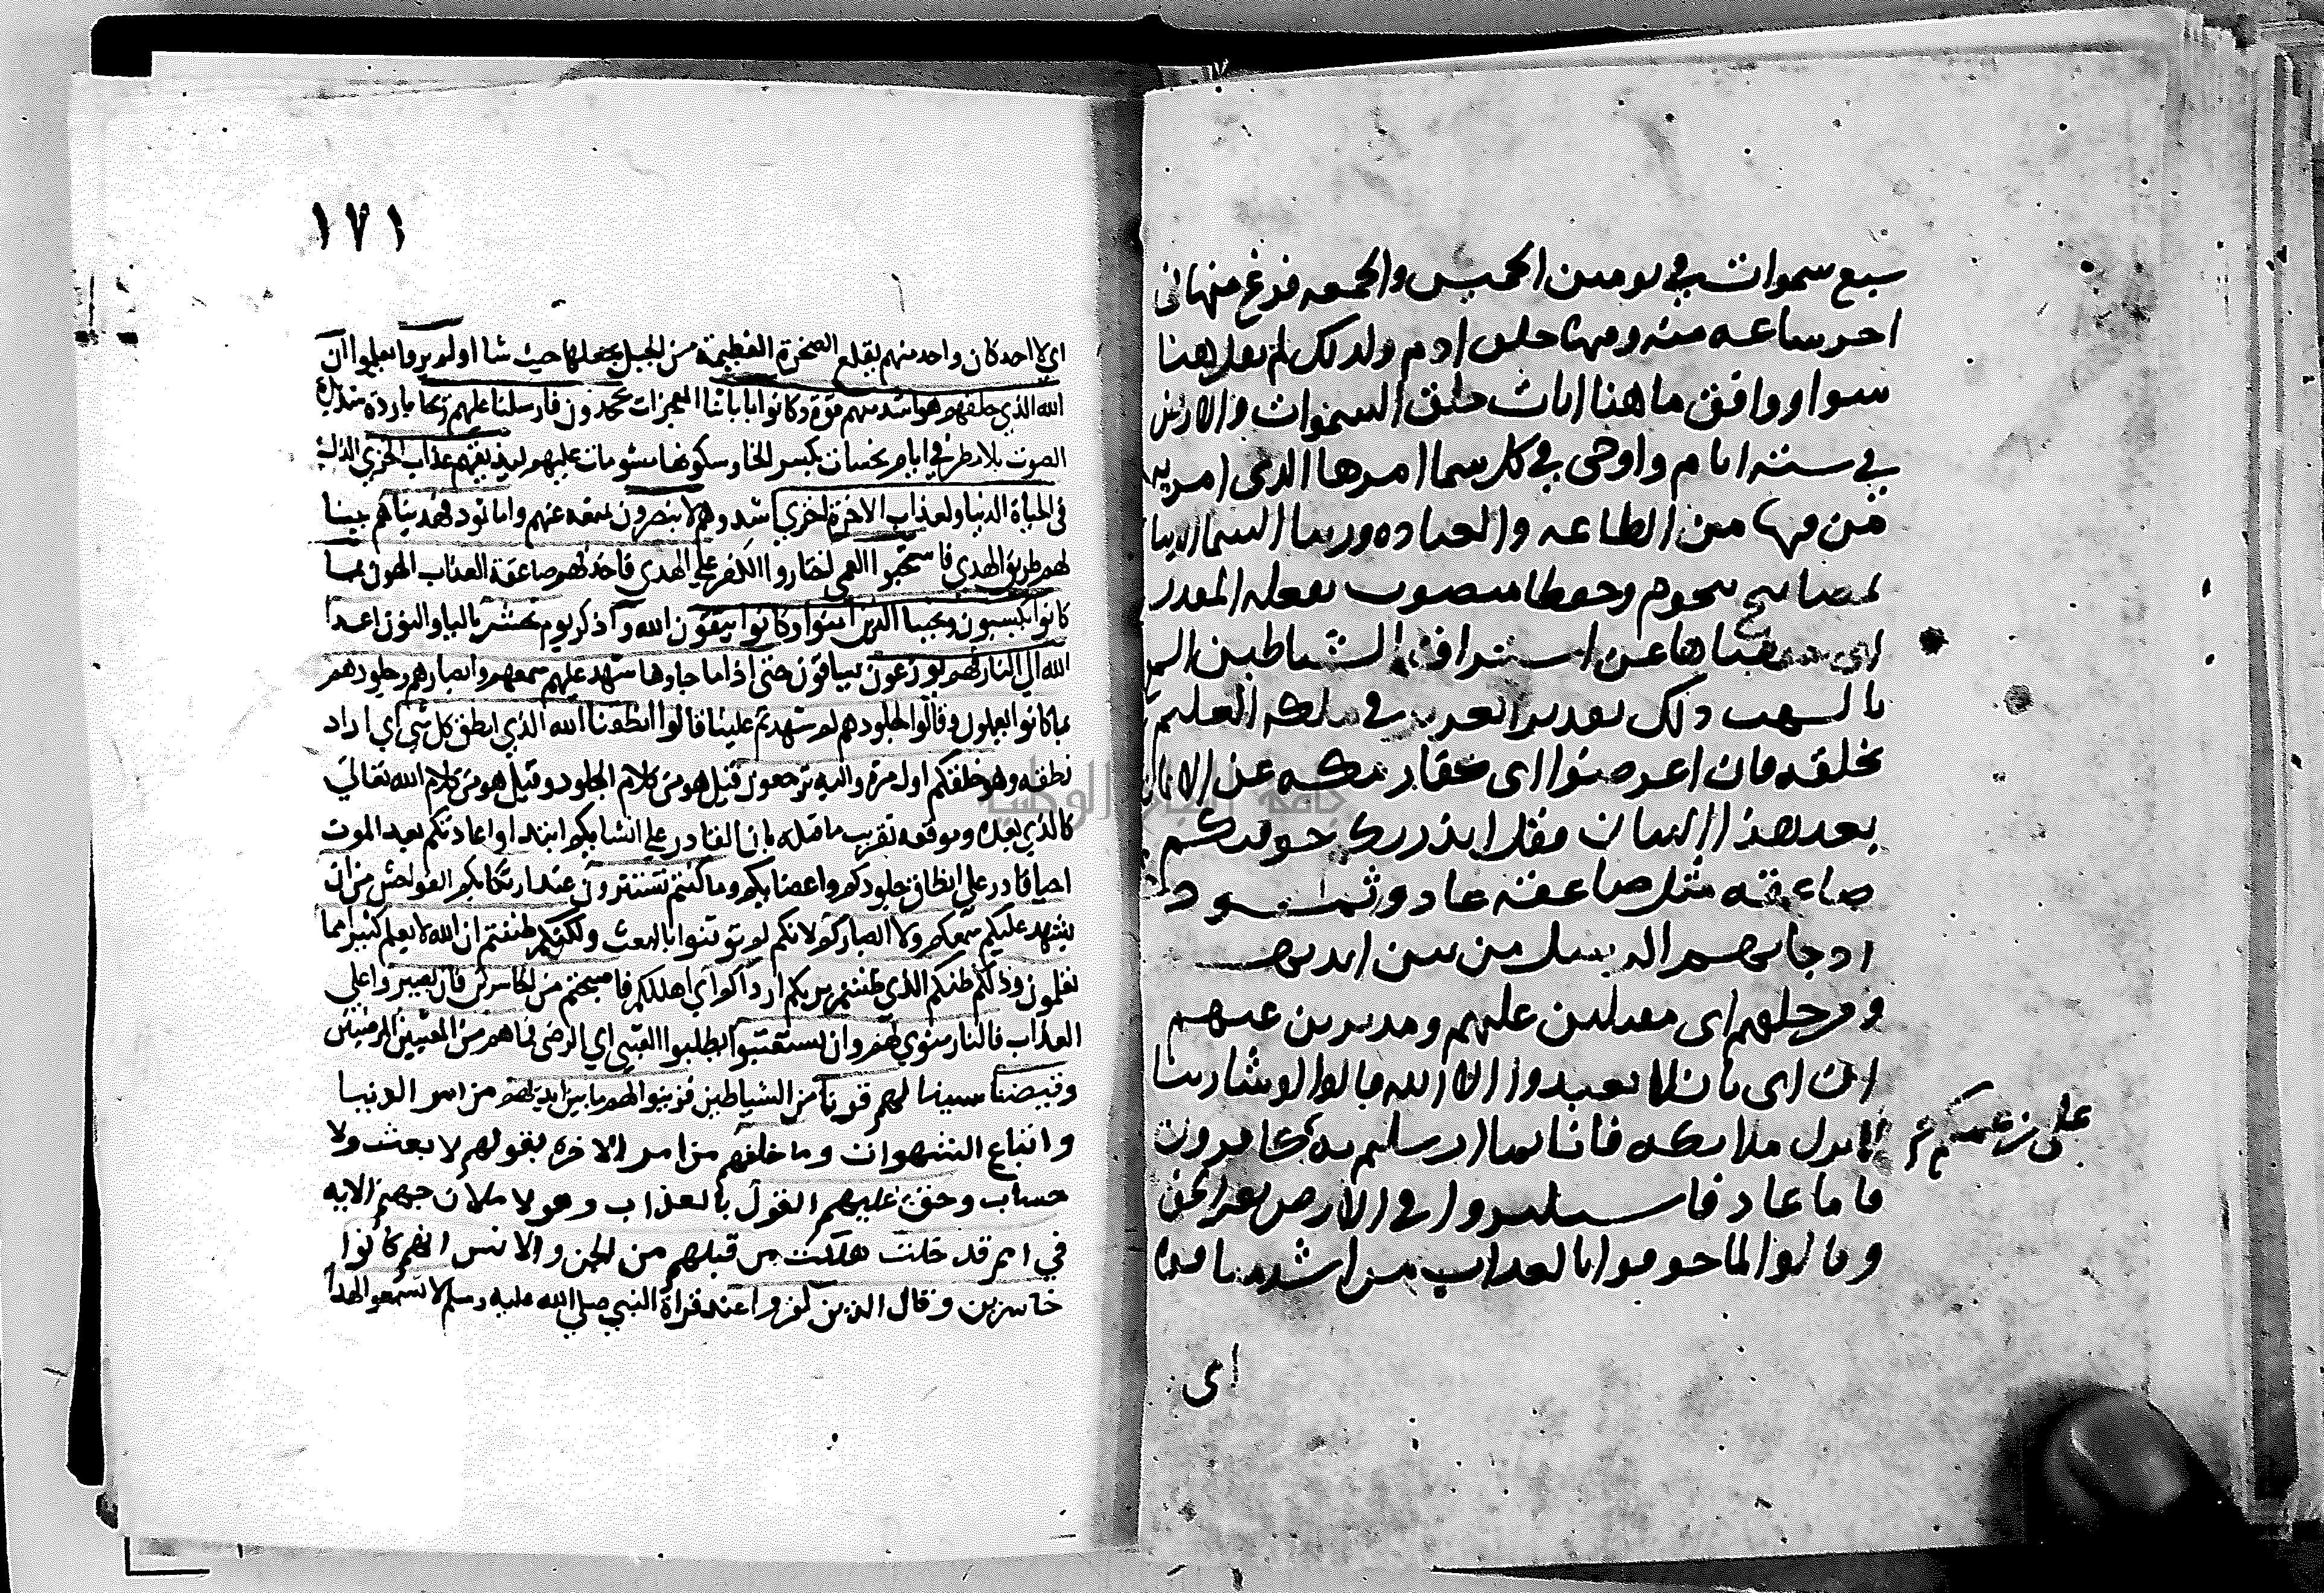 سبع سموات في يومين الخميس والجمعه فرغ منها في
اخر ساعه منه وفيها خلق ادم ولذلك لم يقل هنا
سوا ووافق ما هنا ايات خلق السموات والارض
في ستة ايام واوحى في كل سما امرها الذي امر به
من فيها من الطاعه والعباده وزينا السما الدنيا
بمصابيح بنجوم وحفظا منصوب بفعله المقدر
اي حفظناها عن استراق الشياطين السمع
بالشهب ذلك تقدير العزيز في ملكه العليم
بخلقه فان اعرضوا اي كفار مكه عن الايمان
بعد هذا البيان فقل انذرتكم خوفتكم
صاعقه مثل صاعقة عاد وثمود
اذ جاتهم الرسل من بين ايديهم
ومن خلفهم اي مقبلين عليهم ومدبرين عنهم
ان اي بان لا تعبدوا الا الله قالوا لو شا ربنا
لانزل ملائكه فانا بما ارسلتم به كافرون
على زعمكم
فاما عاد فاستكبروا في الارض بغير الحق
وقالوا لما خوفوا بالعذاب من اشد منا قوة
اي
١٧١
اي لا احد كان واحد منهم يقلع الصخرة العظيمة من الجبل يجعلها حيث شا اولم يروا يعلموا ان
الله الذي خلقهم هو اشد منهم قوة وكانوا باياتنا المعجزات يجحدون فارسلنا عليهم ريحا باردة شديدة
الصوت بلا مطر في ايام نحسات بكسر الحا وسكونها مشومات عليهم لنذيقهم عذاب الخزي الذل
في الحياة الدنيا ولعذاب الاخرة اخزي اشد وهم لا ينصرون بمنعه عنهم واما ثمود فهديناهم بينا
لهم طريق الهدي فاستحبوا العمى اختاروا الكفر على الهدي فاخذتهم صاعقة العذاب الهون بما
كانوا يكسبون ونجينا الذين امنوا وكانوا يتقون الله واذكر يوم يحشر باليا والنون اعدا
الله الى النار فهم يوزعون يساقون حتى اذا ما جاوها شهد عليهم سمعهم وابصارهم وجلودهم
بما كانوا يعملون وقالوا لجلودهم لم شهدتم علينا قالوا انطقنا الله الذي انطق كل شي اي اراد
نطقه وهو خلقكم اول مرة واليه ترجعون قيل هو من كلام الجلود وقيل هو من كلام الله تعالى
كالذي بعده وموقعه تقريب ما قبله بان القادر على انشايكم ابتدا واعادتكم بعد الموت
احيا قادر على انطاق جلودكم واعضايكم وما كنتم تستترون عند ارتكابكم الفواحش من ان
يشهد عليكم سمعكم ولا ابصاركم لانكم لم توقنوا بالبعث ولكن ظننتم ان الله لا يعلم كثيرا مما
تعملون وذلكم ظنكم الذي ظننتم بربكم ارداكم اي اهلككم فاصبحتم من الخاسرين فان يصبروا على
العذاب فالنار مثوي لهم وان يستعتبوا يطلبوا العتبى اي الرضى فما هم من المعتبين المرضيين
وقيضنا سببنا لهم قرنا من الشياطين فزينوا لهم ما بين ايديهم من امر الدنيا
واتباع الشهوات وما خلفهم من امر الاخره بقولهم لا بعث ولا
حساب وحق عليهم القول بالعذاب وهو لاملان جهنم الايه
في امم قد خلت هلكت من قبلهم من الجن والانس انهم كانوا
خاسرين وقال الذين كفروا عند قراة النبي صلى الله عليه وسلم لا تسمعوا لهذا